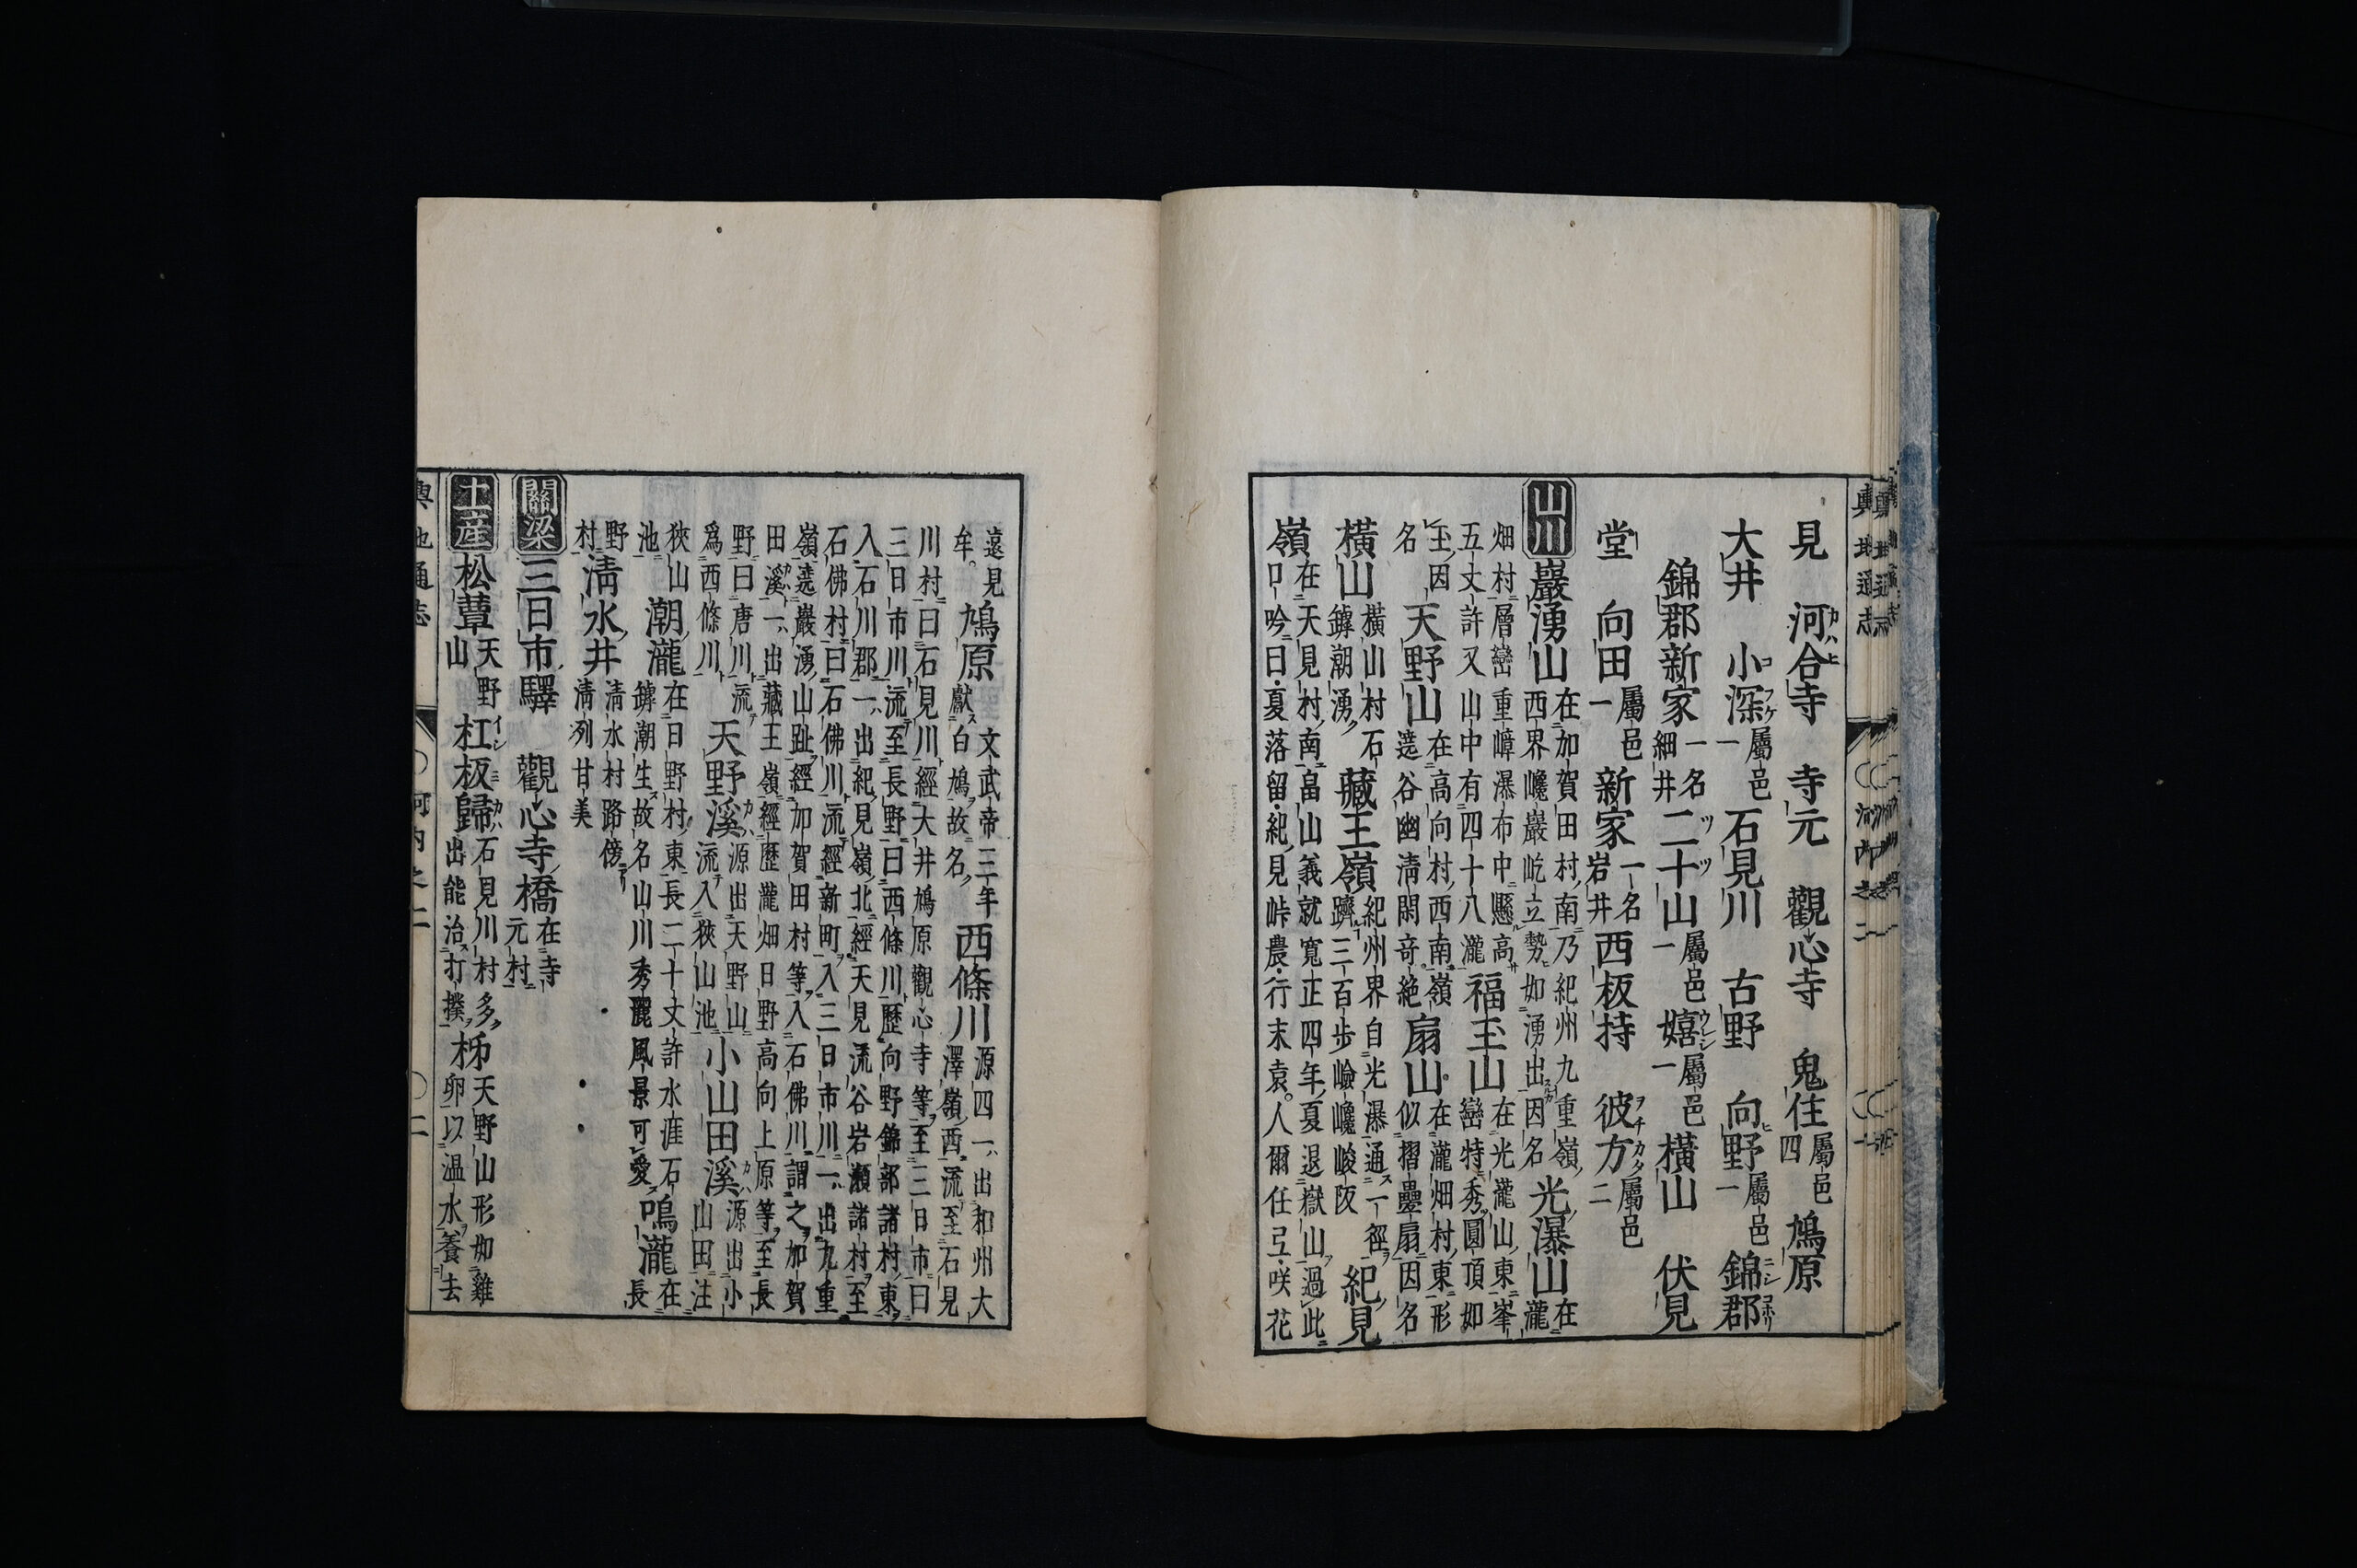 見　河合寺　寺元　觀心寺　鬼住屬邑四　鳩原
大井　小深屬邑一　石見川　古野　向野屬邑一　錦郡
錦郡新家一名細井　二十山屬邑一　嬉屬邑一　橫山　伏見
堂　向田屬邑一　新家一名岩井　西板持　彼方屬邑二
山川　巖湧山在加賀田村南乃紀州九重嶺
西界巉巖屹立勢如湧出因名　光瀑山在瀧
畑村層巒重嶂瀑布中懸高
五丈許又山中有四十八瀧　福玉山在光瀧山東峯
巒特秀圓頂如
玉因名　天野山在高向村西南嶺
遶谷幽淸閑竒絶　扇山在瀧畑村東形
似摺疊扇因名
橫山橫山村石
罅潮湧　藏王嶺紀州界自光瀑通一徑
躋三百步嶮巉峻阪　紀見
嶺在天見村南畠山義就寬正四年夏退嶽山過此
口吟曰夏落留紀見峠農行末袁人爾任弖咲花
遠見
牟　鳩原文武帝三年
獻白鳩故名　西條川源四一出和州大
澤嶺西流至石見
川村曰石見川經大井鳩原觀心寺等至三日市曰
三日市川流至長野曰西條川歷向野錦部諸村東
入石川郡一出紀見嶺北經天見流谷岩瀬諸村至
石佛村曰石佛川流經新町入三日市川一出九重
嶺遶巖湧山趾經加賀田村等入石佛川謂之加賀
田溪一出藏王嶺經歷瀧畑日野高向上原等至長
野曰唐川流
爲西條川　天野溪源出天野山
流入狹山池　小山田溪源出小
山田注
狹山
池　潮瀧在日野村東長二十丈許水涯石
罅潮生故名山川秀麗風景可愛　鳴瀧在
長
野
村　淸水井淸水村路傍
淸列甘美
關梁　三日市驛　觀心寺橋在寺
元村
土産　松蕈天野
山　杠板歸石見川村多
出能治打撲　柹天野山形如雞
卵以温水養去
輿地通志　河内之二　二